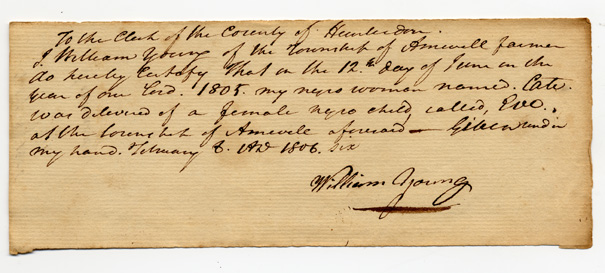 To the Clerk of the County of Hunterdon.
I William Young of the Township of Amwell farmer
do hereby Certify that on the 12.th day of June in the
year of our Lord. 1805. my negro woman named. Cate.
was delivered of a female negro child, called, Eve.,
at the township of Amwell aforesaid — Given under
my hand. February 8. 1806. Six
William Young